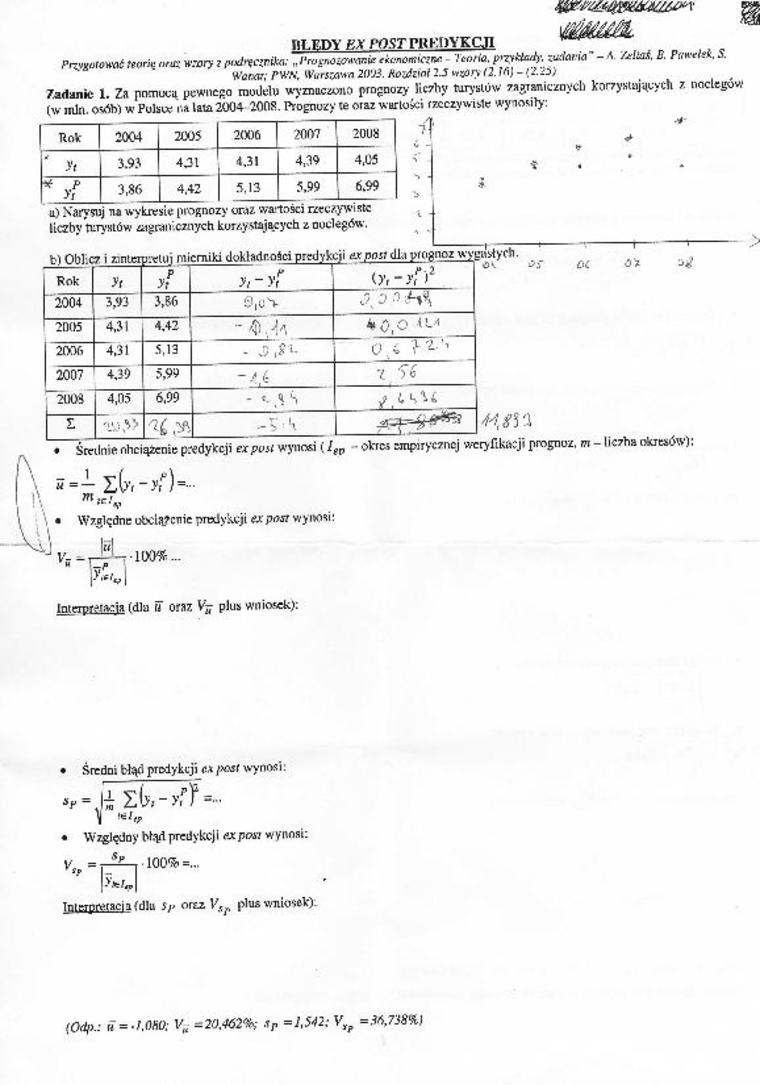 BŁĘDY EX POST PREDYKCJI
Przygotować teorię oraz wzory z podręcznika: „Prognozowanie ekonomiczne - Teoria, przykłady, zadania" – A. Zeliaś, B. Pawełek, S.
Wanat; PWN, Warszawa 2003. Rozdział 2.5 wzory (2.16) – (2.25)
Zadanie 1. Za pomocą pewnego modelu wyznaczono prognozy liczby turystów zagranicznych korzystających z noclegów
(w mln. osób) w Polsce na lata 2004-2008. Prognozy te oraz wartości rzeczywiste wynosiły:
Rok 2004 2005 2006 2007 2008
yt 3,93 4,31 4,31 4,39 4,05
ytP 3,86 4,42 5,13 5,99 6,99
a) Narysuj na wykresie prognozy oraz wartości rzeczywiste
liczby turystów zagranicznych korzystających z noclegów.
04 05 06 07 08
b) Oblicz i zinterpretuj mierniki dokładności predykcji ex post dla prognoz wygasłych.
Rok yt ytP yt – ytP (yt – ytP)²
2004 3,93 3,86 0,07
2005 4,31 4,42 -0,11 0,0121
2006 4,31 5,13 -0,82 0,6724
2007 4,39 5,99 -1,6 2,56
2008 4,05 6,99 -2,94 8,6436
Σ 20,99 26,39 -5,4 11,893
• Średnie obciążenie predykcji ex post wynosi (Iep – okres empirycznej weryfikacji prognoz, m – liczba okresów):
ū = 1/m Σt∈Iep (yt – ytP) =...
• Względne obciążenie predykcji ex post wynosi:
Vū = |ū| / |ȳPt∈Iep| ·100% ...
Interpretacja (dla ū oraz Vū plus wniosek):
• Średni błąd predykcji ex post wynosi:
sP = √(1/m Σt∈Iep (yt – ytP)²) =...
• Względny błąd predykcji ex post wynosi:
VsP = sP / |ȳt∈Iep| ·100% =...
Interpretacja (dla sP oraz VsP plus wniosek):
(Odp.: ū = -1,080; Vū =20,462%; sP =1,542; VsP =36,738%)